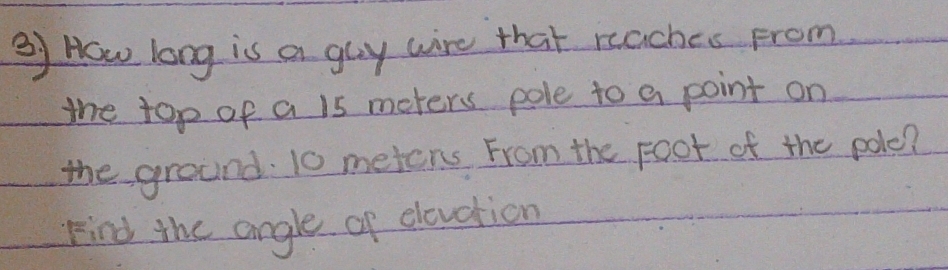 3.) How long is a guy wire that reaches From
the top of a 15 meters pole to a point on
the ground. 10 meters From the Foot of the pole?
Find the angle of elevation